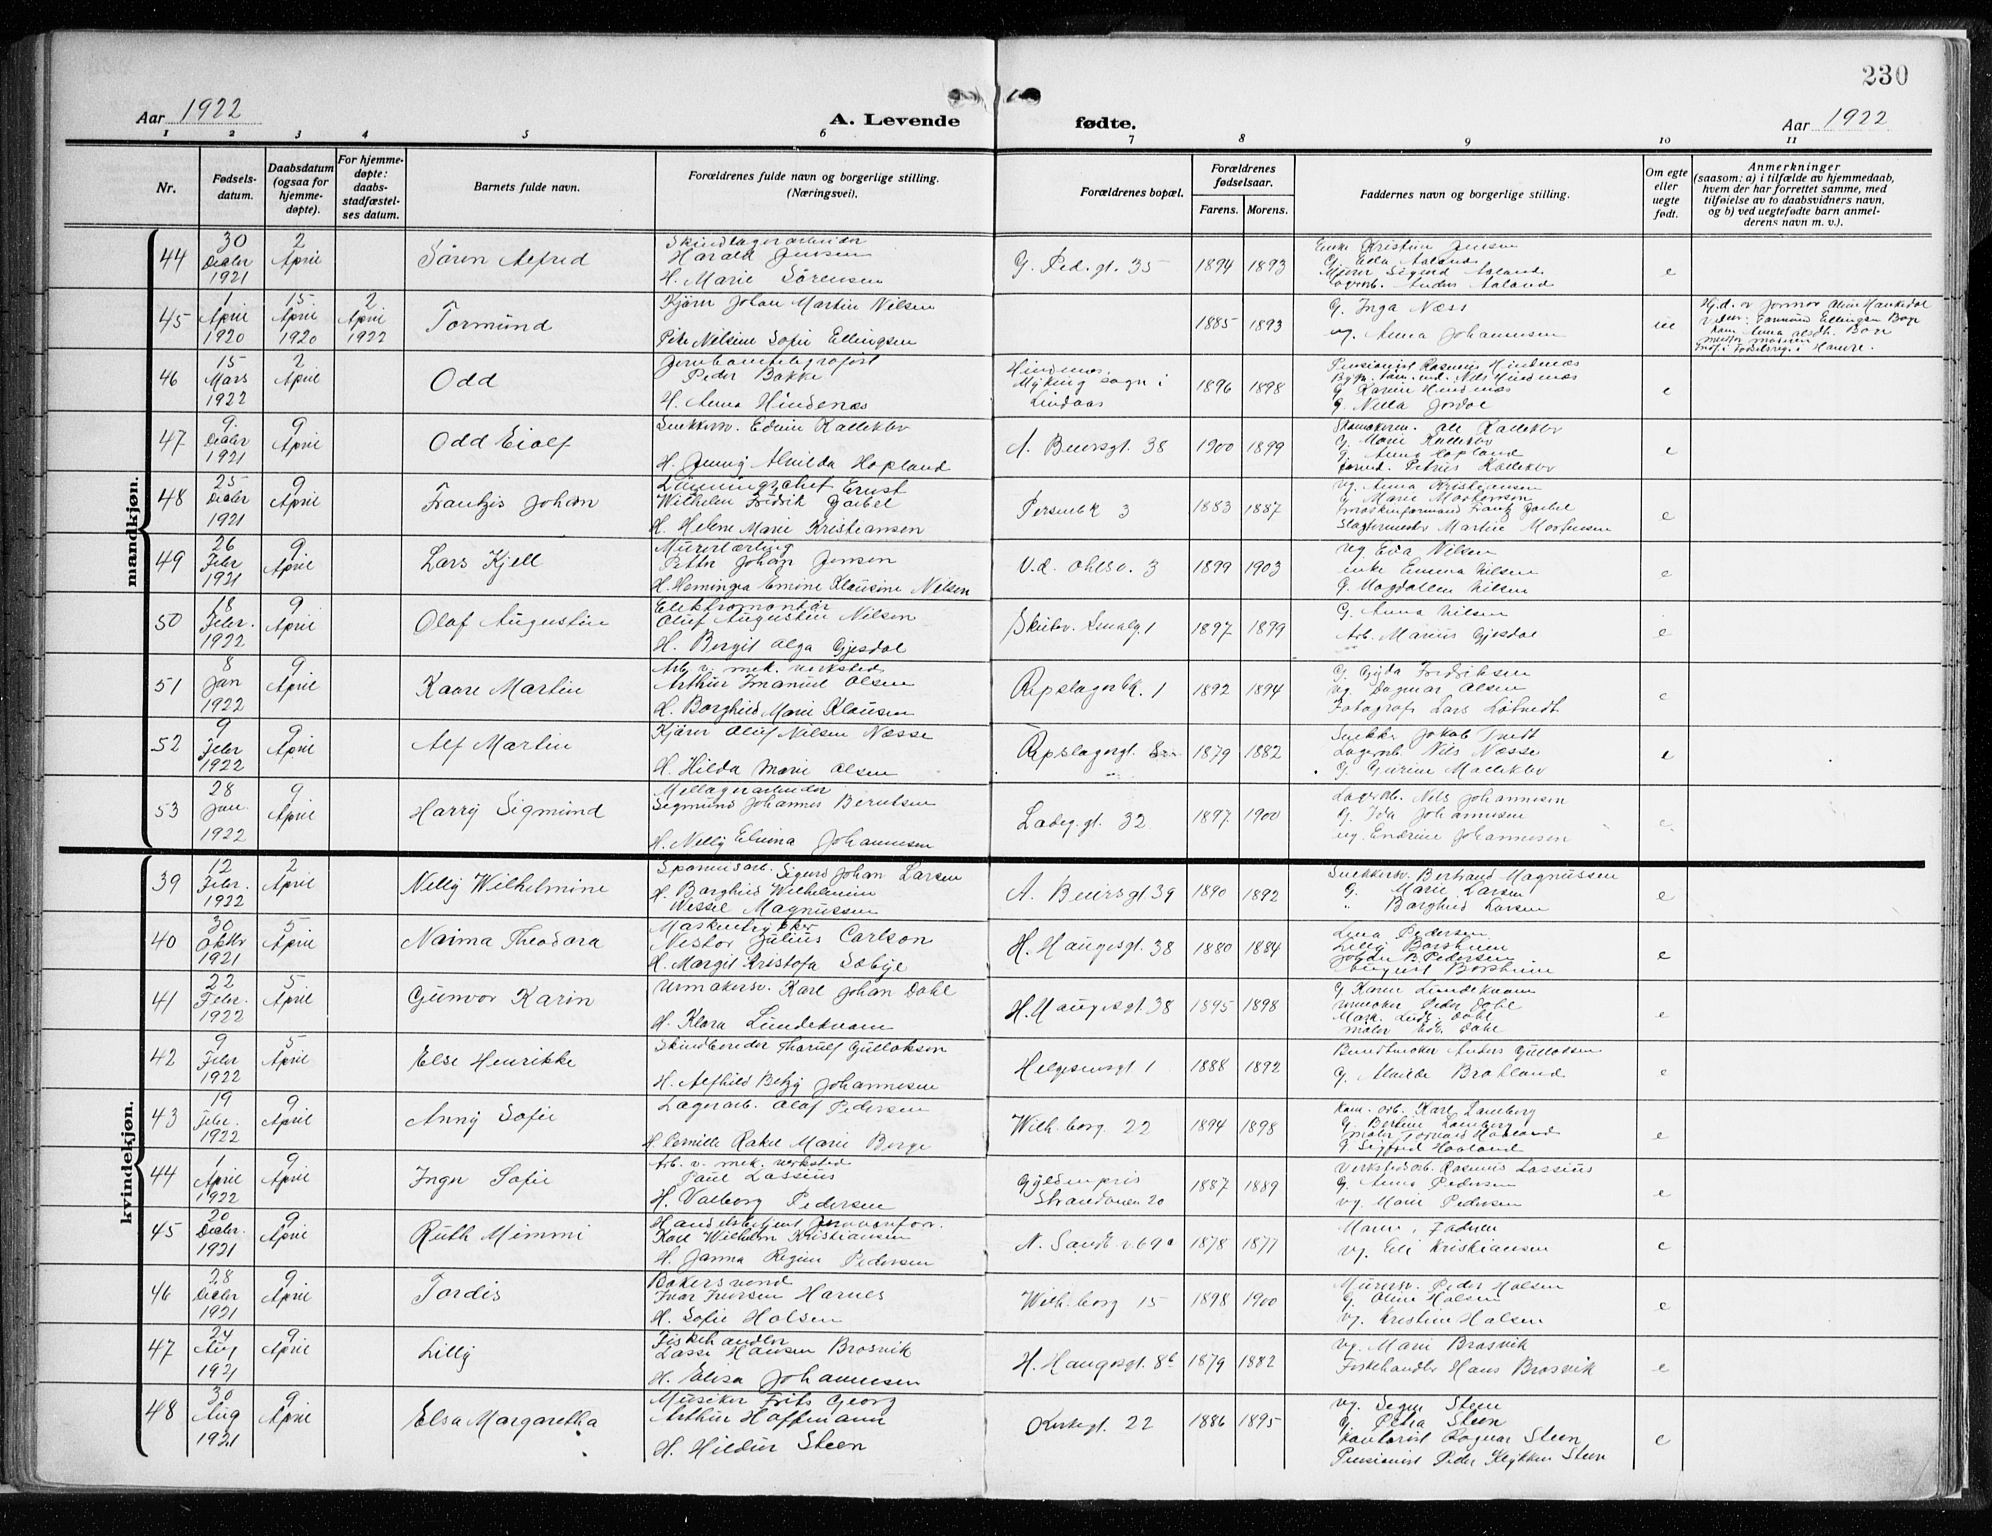 230
Aar 1922
A. Levende fødte.
Aar 1922
1 2 3 4 5 6 7 8 9 10 11
Nr.
Fødsels-
datum.
Daabsdatum
(ogsaa for
hjemme-
døpte).
For hjemme-
døpte:
daabs-
stadfæstel-
ses datum.
Barnets fulde navn.
Forældrenes fulde navn og borgerlige stilling.
(Næringsvei).
Forældrenes bopæl.
Forældrenes
fødselsaar.
Farens. Morens.
Faddernes navn og borgerlige stilling.
Om egte
eller
uegte
født.
Anmerkninger
(saasom: a) i tilfælde av hjemmedaab,
hvem der har forrettet samme, med
tilføielse av to daabsvidners navn,
og b) ved uegtefødte barn anmel-
derens navn m. v.).
mandkjøn.
44
30
Decbr
1921
2
April
Søren Alfred
Skindlagerarbeider
Harald Jensen
H. Marie Sørensen
G. Ped.gt. 35
1894 1893
Enke Kristine Jensen
e
45
1
April
1920
15
April
1920
2
April
1922
Tormund
Kjører Johan Martin Nilsen
Pike Nelsine Sofie Ellingsen
1885 1893
G. Inga Næss
ug. Anna Johannesen
ue
46
15
Mars
1922
2
April
Odd
Jernbanetelegrafist
Peder Bakke
H. Anna Hindenæs
Hindenæs,
Myking sogn i
Lindaas
1896 1898
Pensionist Rasmus Hindenæs
G. Karen Hindenæs
G. Nella Jordal
e
47
9
Decbr
1921
9
April
Odd Eiolf
Snekkersv. Edvin Kalleklev
H. Jenny Alvilda Hopland
A. Beiersgt. 38
1900 1899
G. Marie Kalleklev
G. Anna Hopland
Petrus Kalleklev
e
48
25
Decbr
1921
9
April
Frantzis Johan
Lønningschef Ernst
Wilhelm Fredrik Gaibel
H. Helene Marie Kristiansen
Persenbk 3
1883 1887
ug. Anna Kristiansen
G. Marie Mortensen
Maskinformand Frantz Gaibel
Slagtermester Martin Mortensen
e
49
26
Febr
1921
9
April
Lars Kjell
Murerlærling
Petter Johan Jensen
H. Hemingea Emine Klausine Nilsen
V.d. Ohlsv. 3
1899 1903
ug. Eva Nilsen
enke Emma Nilsen
G. Magdallen Nilsen
e
50
18
Febr.
1922
9
April
Olaf Augustin
Elektromontør
Oluf Augustin Nilsen
H. Bergit Olga Gjesdal
Skutev. Smalg. 1
1897 1899
G. Anna Nilsen
Arb. Marius Gjesdal
e
51
8
Jan
1922
9
April
Kaare Martin
Arb. v. mek. verksted
Arthur Imanuel Olsen
H. Borghild Marie Klausen
Repslagerbk. 1
1892 1894
G. Gyda Fredriksen
ug. Dagmar Olsen
Fotograf Lars Løtvedt
e
52
9
Febr
1922
9
April
Alf Martin
Kjører Oluf Nilsen Næsse
H. Hilda Marie Olsen
Repslagergt.
1879 1882
Snekker Jakob Tvedt
Lagerarb. Nils Næsse
G. Gurine Malleklev
e
53
28
Jan.
1922
9
April
Harry Sigmund
Mellagerarbeider
Sigmund Johannes Berntsen
H. Nelly Elvina Johannesen
Ladeg.gt. 32
1897 1900
Lagerarb. Nels Johannesen
G. Ida Johannesen
ug. Endrine Johannesen
e
kvindekjøn.
39
12
Febr.
1922
2
April
Nelly Wilhelmine
Sigurd Johan Larsen
H. Borghild Wilhelmine
Wessel Magnussen
A. Beiersgt 39
1890 1892
Snekkersv. Bertrand Magnussen
G. Marie Larsen
" Borghild Larsen
e
40
30
Oktbr
1921
5
April
Naima Theodora
Maskintrykker
Nestor Julius Carlson
H. Margit Kristofa Sæbye
H. Haugesgt. 38
1880 1884
Lina Pedersen
Lilly Borsheim
Johan B. Pedersen
August Borsheim
e
41
22
Febr.
1922
5
April
Gunvor Karin
Urmakersv. Karl Johan Dahl
H. Klara Lundekvam
H. Haugesgt 38
1895 1898
G. Karen Lundekvam
Urmaker Peder Dahl
Mask. Ludv. Dahl
Maler Edv. Dahl
e
42
9
Febr
1922
5
April
Else Henrikke
Skindbereder Tharulf Gullaksen
H. Alfhild Betzy Johannesen
Helgesensgt 1
1888 1892
Bundtmaker Anders Gullaksen
G. Alvilde Bratland
e
43
19
Febr.
1922
9
April
Anny Sofie
Lagerarb. Olaf Pedersen
H. Pernille Rakel Marie Berge
Wilh.borg. 22
1894 1898
Kom. arb. Karl Lamberg
G. Bertine Lamberg
Maler Tormod Haaland
G. Sigfrid Haaland
e
44
1
April
1922
9
April
Inger Sofie
Arb. v. mek. verksted
Paul Lassius
H. Valborg Pedersen
Gyldenpris
Strandveien 20
1887 1889
Verkstedarb. Rasmus Lassius
G. Anna Pedersen
ug. Marie Pedersen
e
45
20
Decbr.
1921
9
April
Ruth Mimmi
Handelsbetjent
Karl Wilhelm Kristiansen
H. Janna Regine Pedersen
N. Sandv.v. 69a
1878 1877
ug. Eli Kristiansen
e
46
28
Decbr
1921
9
April
Tordis
Bakersvend
Ivar Iversen Harnes
H. Sofie Halsen
Wilh.borg 15
1898 1900
Murersv. Peder Halsen
G. Oline Halsen
ug. Kristine Halsen
e
47
24
Aug
1921
9
April
Lilly
Fiskehandler
Lasse Hansen Brosvik
H. Elisa Johannesen
H. Haugesgt. 8b
1879 1882
ug. Marie Brosvik
Fiskehandler Hans Brosvik
e
48
30
Aug
1921
9
April
Elsa Margaretha
Musiker Frits Georg
Arthur Hoffmann
H. Hildur Steen
Kirkegt. 22
1886 1895
ug. Signe Steen
G. Petra Steen
Kontorist Ragnar Steen
Pensionist Peder Steen
e